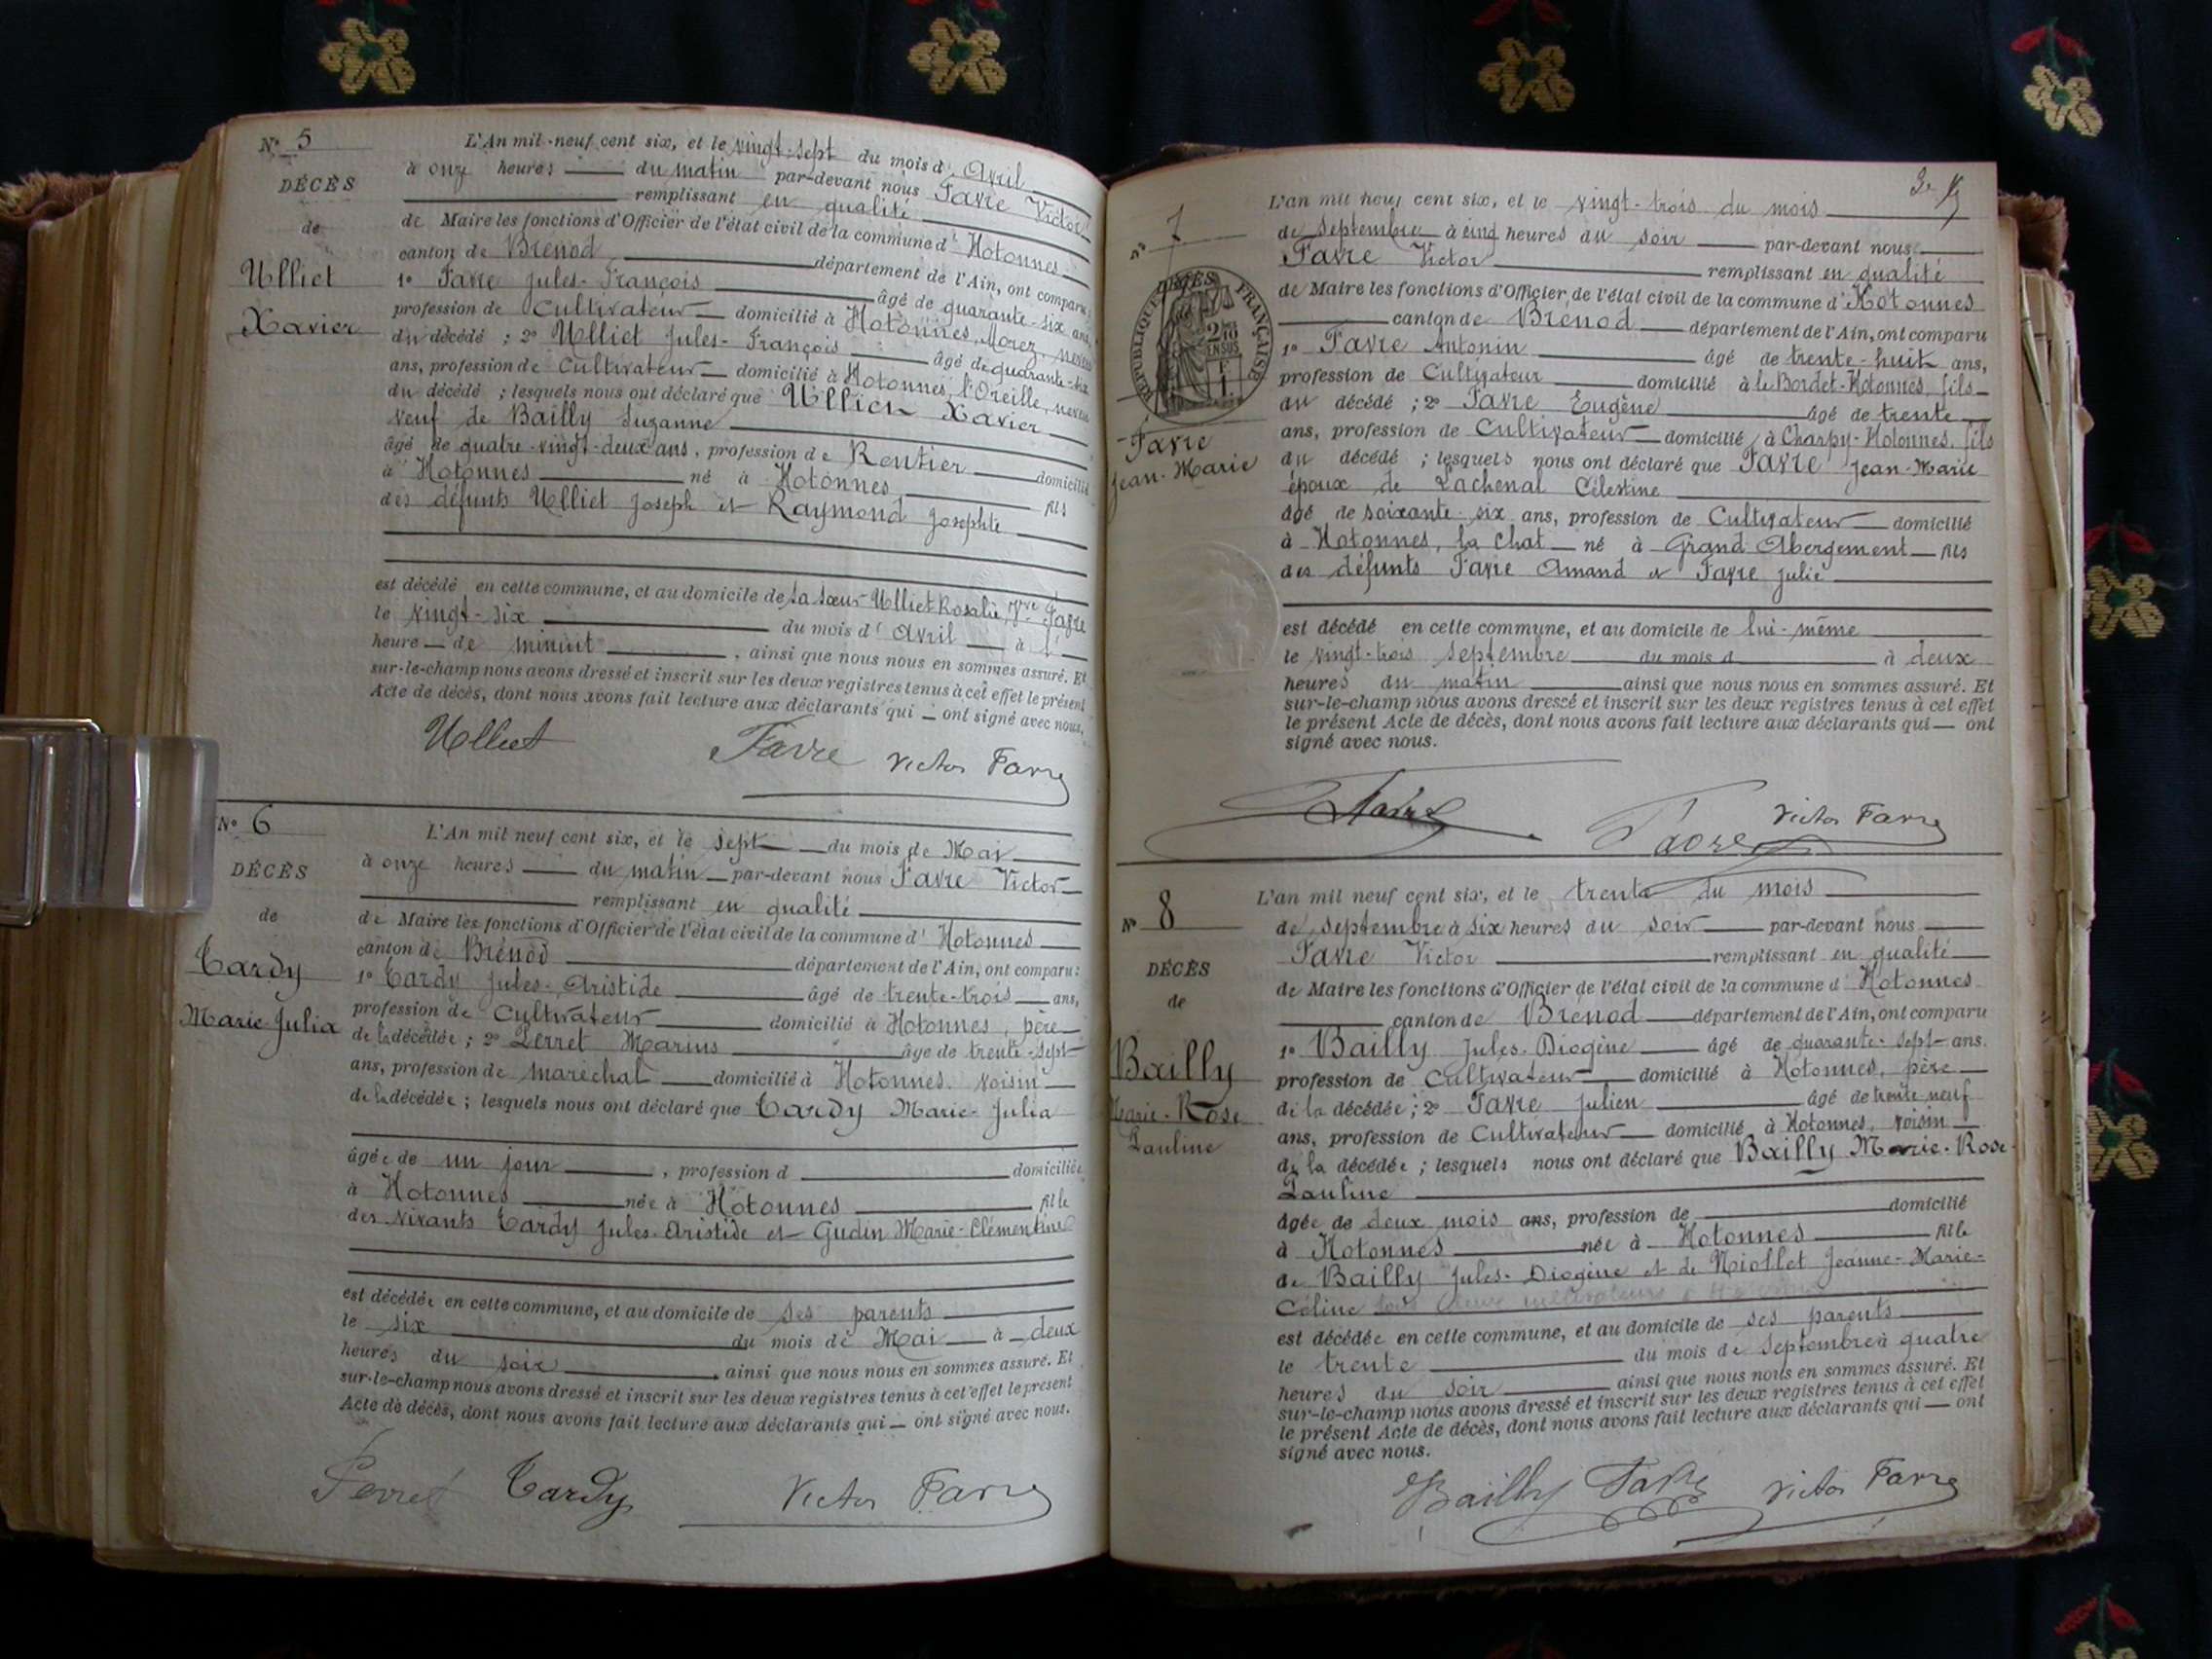 N° 5
DÉCÈS
de
Ulliet
Xavier
L'An mil-neuf cent six, et le vingt-sept du mois d' Avril
à onze heures du matin par-devant nous Favre Victor
remplissant en qualité
de Maire les fonctions d'Officier de l'état civil de la commune d' Hotonnes
canton de Brenod département de l'Ain, ont comparu:
1° Favre Jules-François âgé de quarante-six ans,
profession de Cultivateur domicilié à Hotonnes, Morez, neveu
du décédé ; 2° Ulliet Jules-François âgé de quarante-six
ans, profession de Cultivateur domicilié à Hotonnes, l'Oreille, neveu
du décédé ; lesquels nous ont déclaré que Ulliet Xavier
veuf de Bailly Suzanne
âgé de quatre-vingt-deux ans, profession de Rentier domicilié
à Hotonnes né à Hotonnes fils
des défunts Ulliet Joseph et Raymond Josephte
est décédé en cette commune, et au domicile de sa sœur Ulliet Rosalie, Vve Favre
le vingt-six du mois d' Avril à l'
heure de minuit, ainsi que nous nous en sommes assuré. Et
sur-le-champ nous avons dressé et inscrit sur les deux registres tenus à cet effet le présent
Acte de décès, dont nous avons fait lecture aux déclarants qui ont signé avec nous.
Ulliet Favre Victor Favre
N° 6
DÉCÈS
de
Tardy
Marie-Julia
L'An mil neuf cent six, et le sept du mois de Mai
à onze heures du matin par-devant nous Favre Victor
remplissant en qualité
de Maire les fonctions d'Officier de l'état civil de la commune d' Hotonnes
canton de Brénod département de l'Ain, ont comparu:
1° Tardy Jules-Aristide âgé de trente-trois ans,
profession de Cultivateur domicilié à Hotonnes, père
de la décédée ; 2° Perret Marius âgé de trente-sept
ans, profession de maréchal domicilié à Hotonnes. voisin
de la décédée ; lesquels nous ont déclaré que Tardy Marie-Julia
âgée de un jour, profession d domiciliée
à Hotonnes née à Hotonnes fille
des vivants Tardy Jules-Aristide et Gudin Marie-Clémentine
est décédée en cette commune, et au domicile de ses parents
le six du mois de Mai à deux
heures du soir, ainsi que nous nous en sommes assuré. Et
sur-le-champ nous avons dressé et inscrit sur les deux registres tenus à cet effet le présent
Acte de décès, dont nous avons fait lecture aux déclarants qui ont signé avec nous.
Perret Tardy Victor Favre
N° 7
RÉPUBLIQUE FRANÇAISE
2/10
EN SUS
Favre
Jean-Marie
L'an mil neuf cent six, et le vingt-trois du mois
de septembre à cinq heures du soir par-devant nous
Favre Victor remplissant en qualité
de Maire les fonctions d'Officier de l'état civil de la commune d' Hotonnes
canton de Brenod département de l'Ain, ont comparu
1° Favre Antonin âgé de trente-huit ans,
profession de Cultivateur domicilié à le Bordet-Hotonnes, fils
du décédé ; 2° Favre Eugène âgé de trente
ans, profession de Cultivateur domicilié à Charpy-Hotonnes. fils
du décédé ; lesquels nous ont déclaré que Favre Jean-Marie
époux de Lachenal Célestine
âgé de soixante-six ans, profession de Cultivateur domicilié
à Hotonnes, la Chat né à Grand Abergement fils
des défunts Favre Amand et Favre Julie
est décédé en cette commune, et au domicile de lui-même
le vingt-trois septembre du mois d à deux
heures du matin ainsi que nous nous en sommes assuré. Et
sur-le-champ nous avons dressé et inscrit sur les deux registres tenus à cet effet
le présent Acte de décès, dont nous avons fait lecture aux déclarants qui ont
signé avec nous.
Favre Favre Victor Favre
N° 8
DÉCÈS
de
Bailly
Marie-Rose
Pauline
L'an mil neuf cent six, et le trente du mois
de septembre à six heures du soir par-devant nous
Favre Victor remplissant en qualité
de Maire les fonctions d'Officier de l'état civil de la commune d' Hotonnes
canton de Brenod département de l'Ain, ont comparu
1° Bailly Jules-Diogène âgé de quarante-sept ans.
profession de Cultivateur domicilié à Hotonnes, père
de la décédée ; 2° Favre Julien âgé de trente neuf
ans, profession de Cultivateur domicilié à Hotonnes, voisin
de la décédée ; lesquels nous ont déclaré que Bailly Marie-Rose-
Pauline
âgée de deux mois ans, profession de domicilié
à Hotonnes née à Hotonnes fille
de Bailly Jules-Diogène et de Niollet Jeanne-Marie-
Céline
est décédée en cette commune, et au domicile de ses parents
le trente du mois de Septembre à quatre
heures du soir ainsi que nous nous en sommes assuré. Et
sur-le-champ nous avons dressé et inscrit sur les deux registres tenus à cet effet
le présent Acte de décès, dont nous avons fait lecture aux déclarants qui ont
signé avec nous.
Bailly Favre Victor Favre